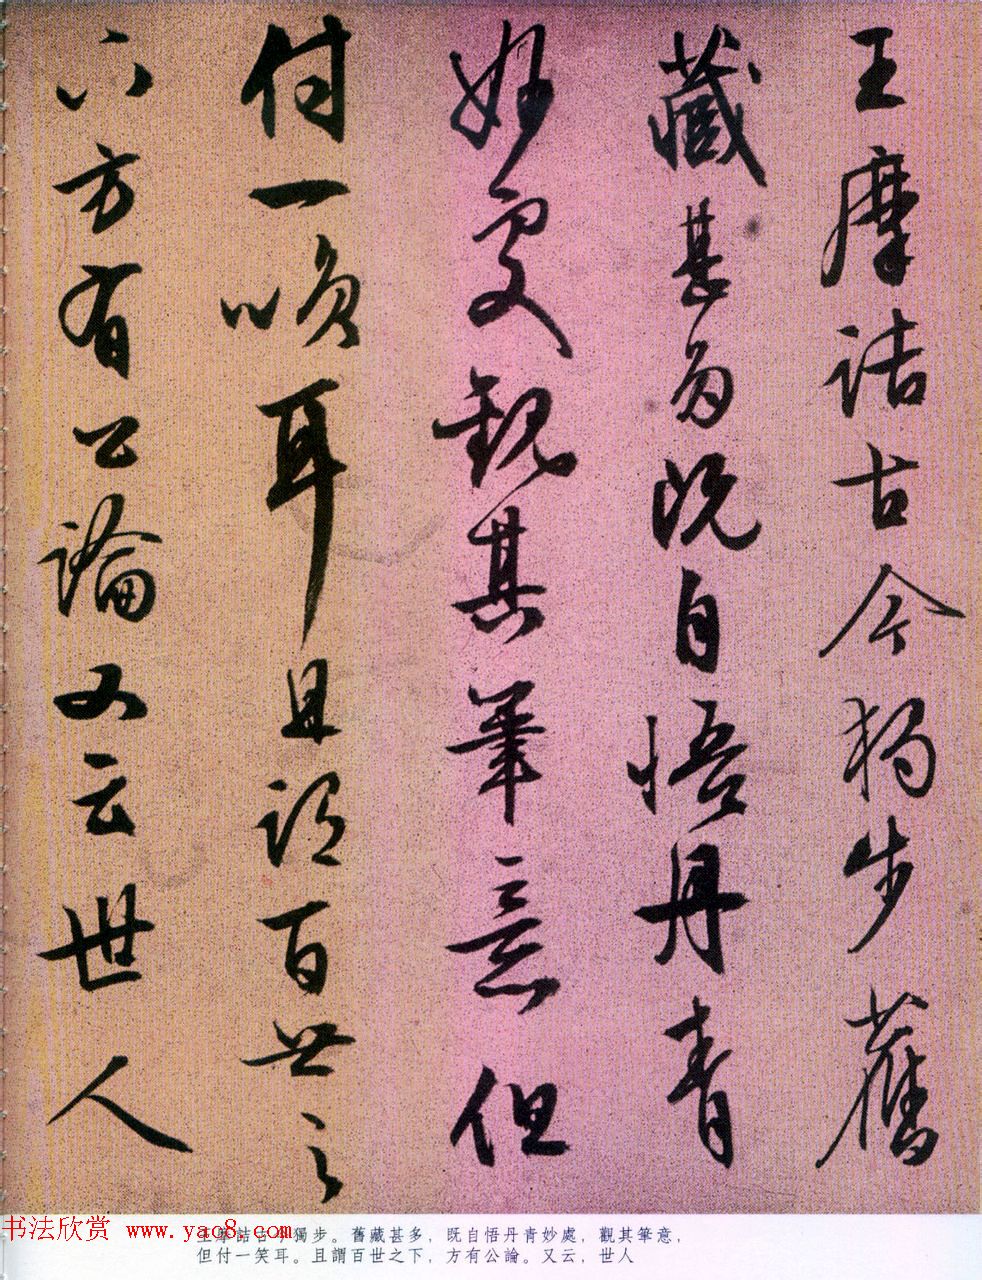 王摩詰古今獨步舊
藏甚多既自悟丹青
妙處觀其筆意但
付一笑耳且謂百世之
下方有公論又云世人
书法欣赏 www.yac8.com
王摩詰古今獨步。舊藏甚多，既自悟丹青妙處，觀其筆意，
但付一笑耳。且謂百世之下，方有公論。又云，世人